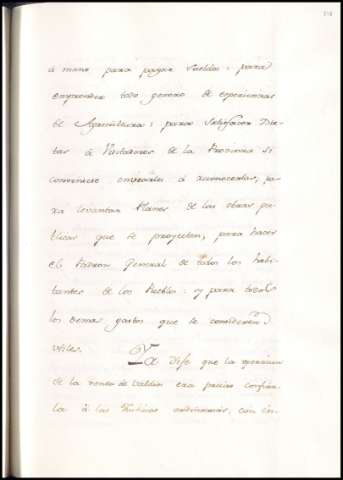 á mano para pagar sueldos: para
emprender todo genero de experiencias
de Agricultura: para satisfacer Die-
tas á Visitadores de la Provincia si
conviniese embiarlos á reconocerlas, pa-
ra levantar Planes de las obras pu-
blicas que se proyecten, para hacer
el Padron General de todos los habi-
tantes de los Pueblos: y para todos
los demas gastos que se consideren
utiles. Ya dije que la operacion
de la venta de Valdios era preciso confiar-
la á las Justicias ordinarias, con in-